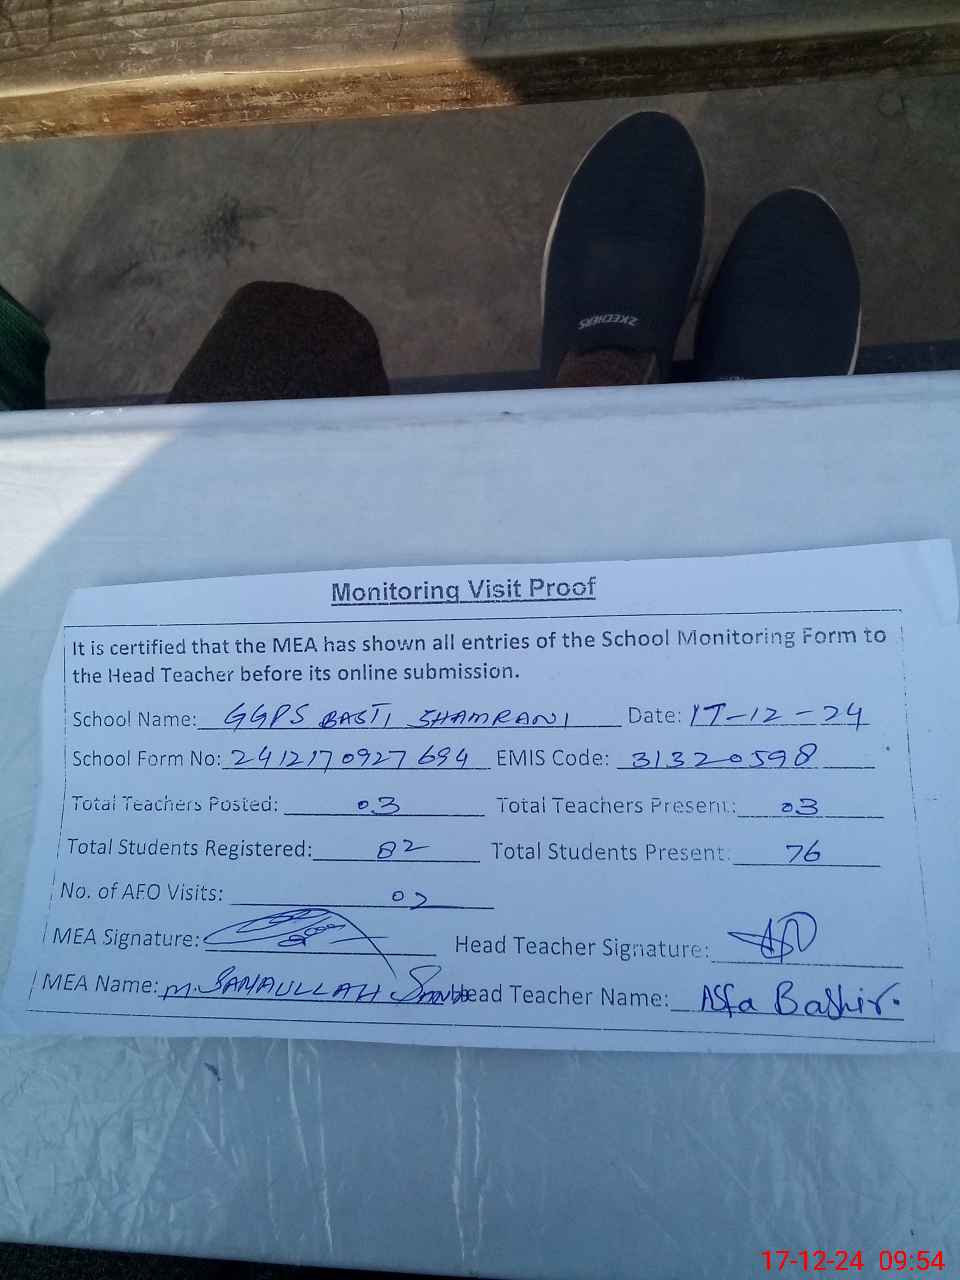 ZKECHERS
Monitoring Visit Proof
It is certified that the MEA has shown all entries of the School Monitoring Form to
the Head Teacher before its online submission.
School Name: GGPS BASTI SHAMRANI Date: 17-12-24
School Form No: 2412170927694 EMIS Code: 31320598
Total Teachers Posted: 03 Total Teachers Present: 03
Total Students Registered: 82 Total Students Present: 76
No. of AFO Visits: 02
MEA Signature: Head Teacher Signature:
MEA Name: M. SANAULLAH Head Teacher Name: Asfa Bashir.
17-12-24 09:54